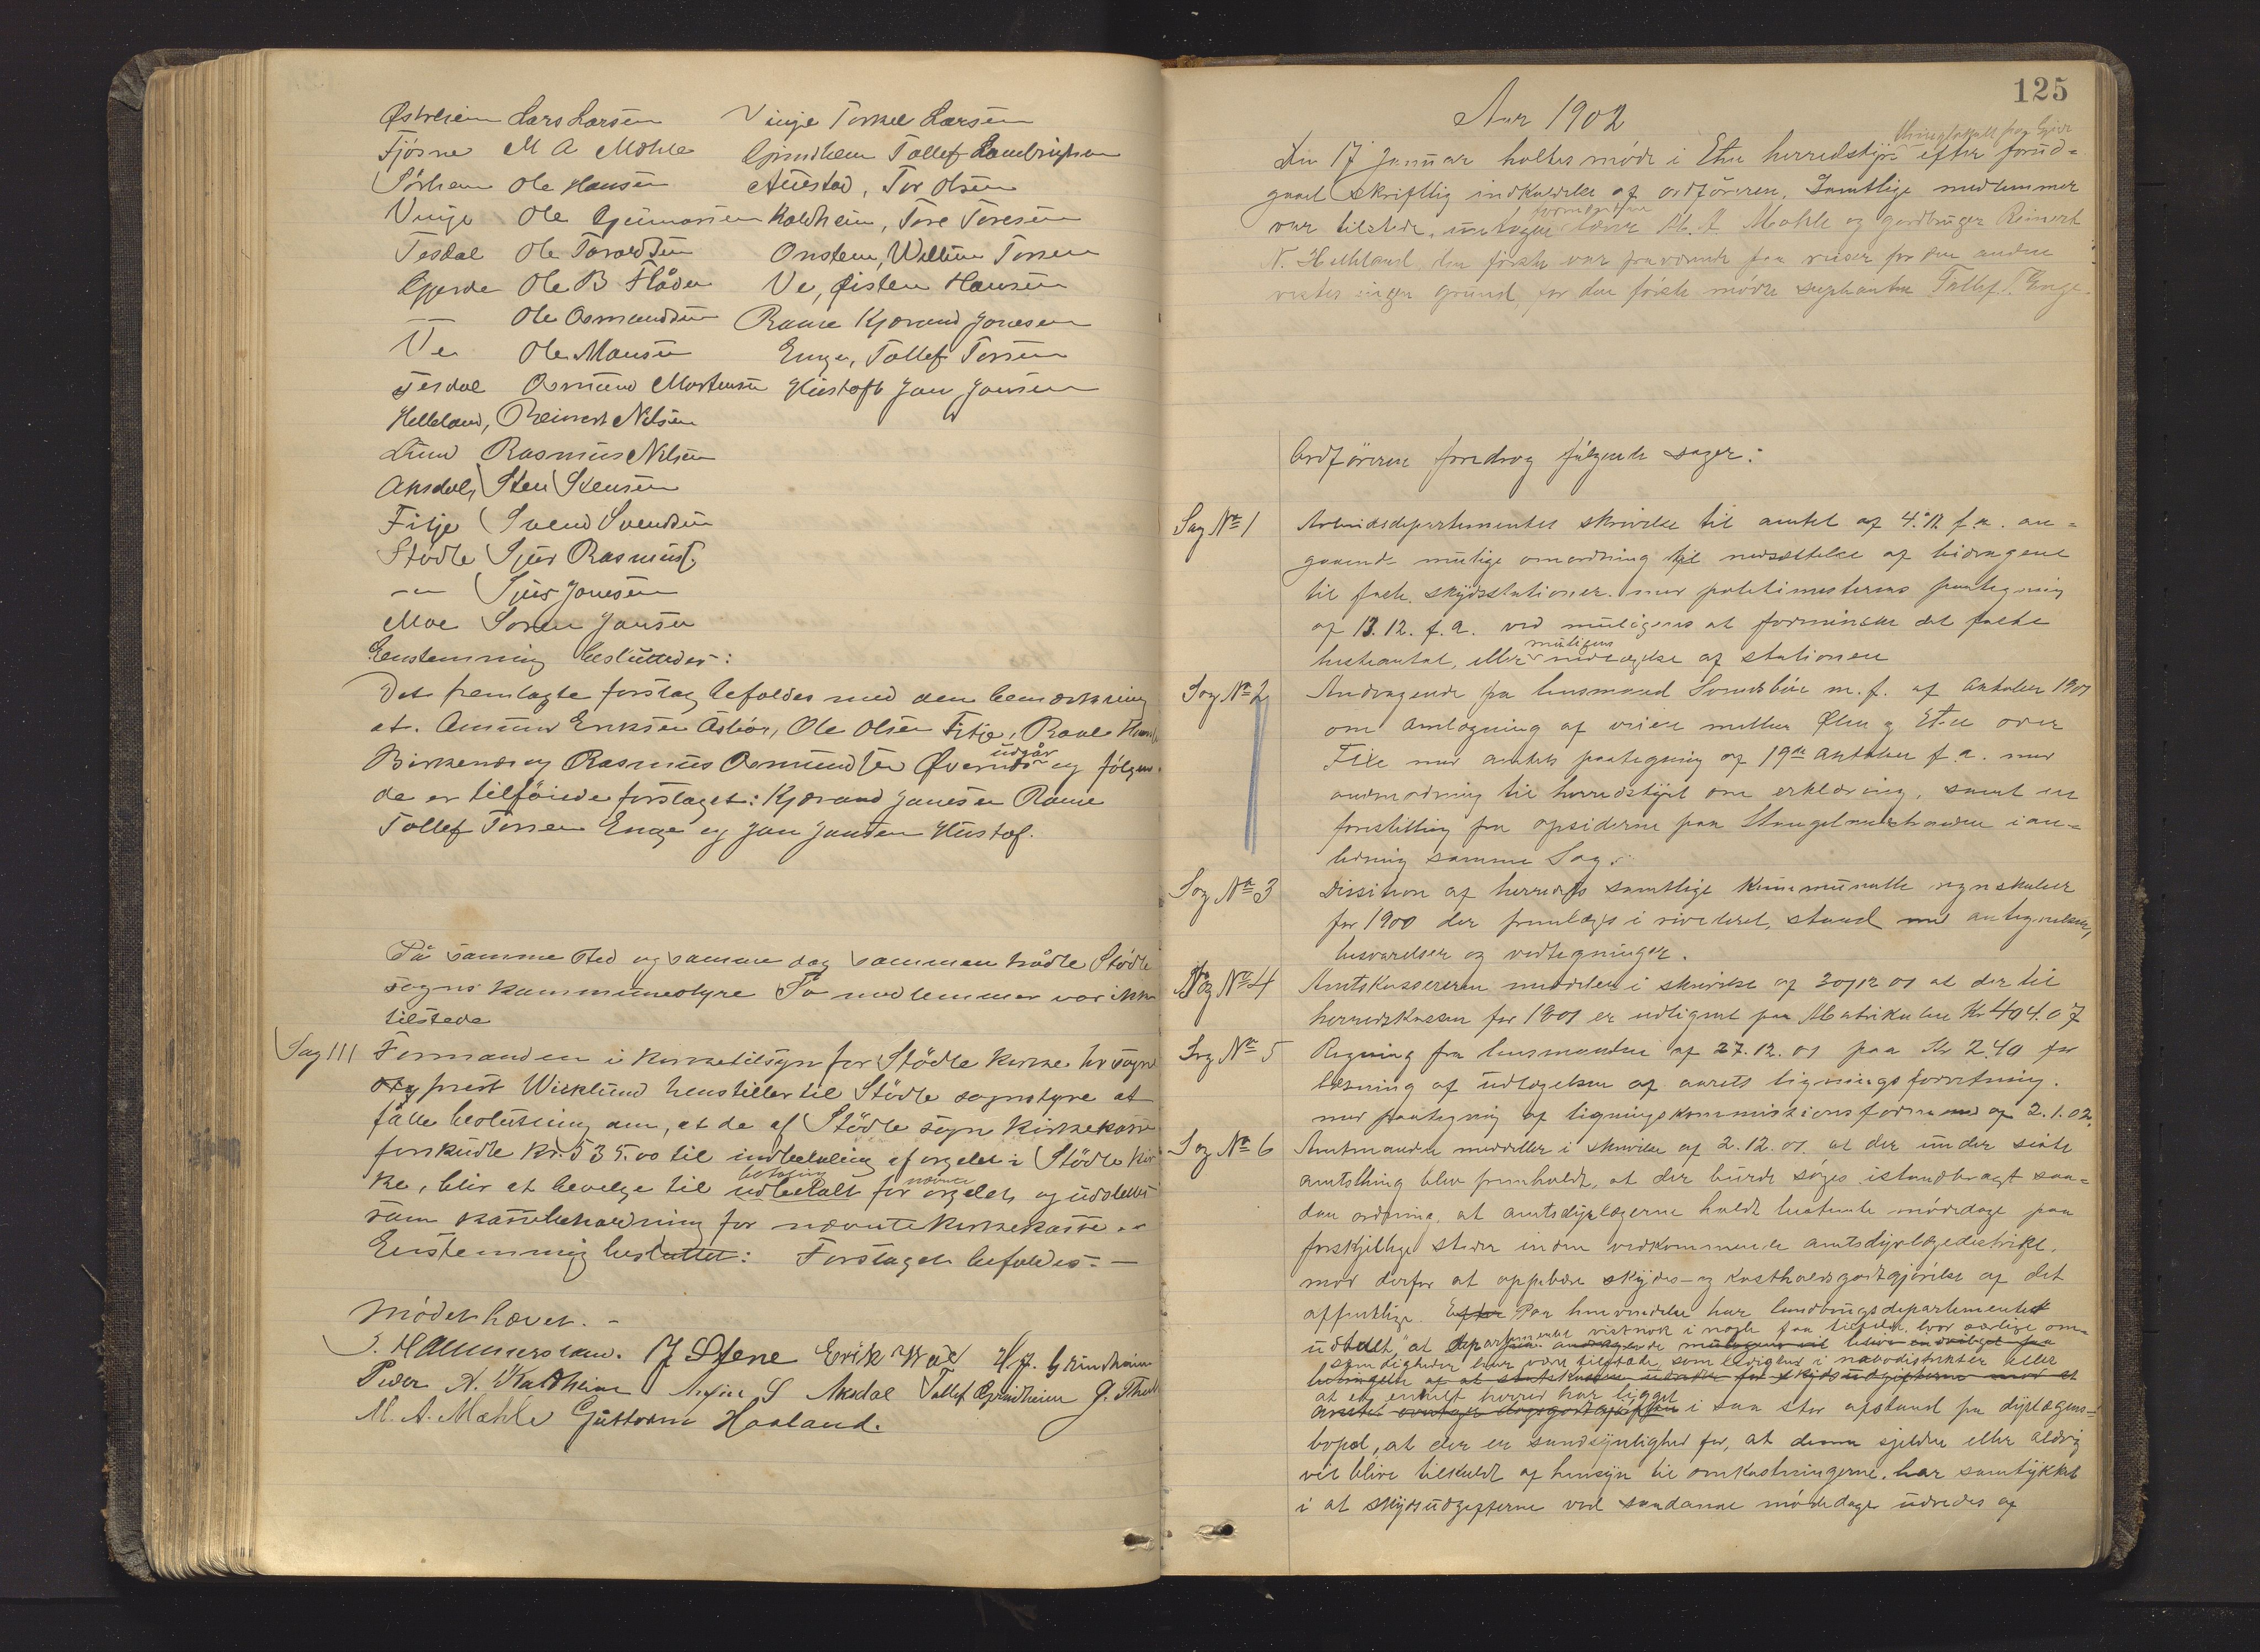 Østreim Lars Larsen
Fjösne M A Mæhle
Sörheim Ole Hansen
Vinje Ole Gunnarsen
Tesdal Ole Toraldsen
Gjerde Ole B Flåden
— Ole Osmundsen
Ve Ole Monsen
Tesdal Osmund Mortensen
Helleland, Reinert Nilsen
Lund Rasmus Nilsen
Aksdal, Sten Stensen
Fitje Svend Svendsen
Stödle Sjur Rasmus.
-"- Sjur Jonesen
Moe Soren Jansen
Vinje Torkel Larsen
Grindheim Tollef Lambrigtsen
Auestad, Tor Olsen
Kaldheim, Tore Toresen
Onstein, William Torsen
Ve, Øisten Hansen
Rame Kjorand Jonesen
Enge, Tollef Torsen
Hustoft Jan Jansen
Eenstemmig besluttedes:
Det fremlagte forslag befoldes med den bemærkning
at. Amund Eriksen Østbö, Ole Olsen Fitje, Raal
Birkenes og Rasmus Osmundsen Øvernes udgår og følgen
de er tilföiede forslaget: Kjorand Jonesen Rame
Tollef Torsen Enge og Jan Jansen Hustof.
På samme sted og samme dag sammen trådte Stödle
sogns kommunestyre To medlemmer var ikke
tilstede
Sag 111 Formanden i kirketilsyn for Stödle kirke hr sogne
prest Wicklund henstiller til Stödle sognstyre at
fatte beslutning om, at de af Stödle sogn kirkekasse
forskudte kr. 535.00 til indbetaling af orgelet i Stödle kir
ke, blir at bevilge til udbetalt betaling for nævnte orgelet, og udslettes
som kassebeholdning for nævnte kirkekasse
Enstemmig besluttet: Forslaget befoldes. —
Mødet hævet. -
S. Hammersland. J Stene Erik Wae H. J. Grindheim
Peder A. Kaldheim S Aksdal Tollef Grindheim
M. A. Mæhle Guttorm Haaland.
125
Aar 1902
Den 17 Januar holtes möde i Etne herredstyre efter forud-
gaaet skriftlig indkaldelse af ordføreren. Samtlige medlemmer
var tilstede, undtagen M. A Mæhle og gardbruger Reinert
N. Helleland, den første var fraværende paa reiser for den anden
vistes ingen grund, for den første mødte suplianten Tollef T. Enge.
Ordføreren foredrog følgende sager:
Sag No 1 Arbeidsdepartementets skrivelse til amtet af 4.12 f.a. an-
gaaende mulige omordning til nedsættelse af bidragene
til faste skydsstationer. med politimesterens paategning
af 13.12. f.a. ved muligens at forminske det faste
hesteantal, eller muligens nedlæggelse af stationen
Sag No 2 Andragende fra lensmand m. f. af Oktober 1901
om omlægning af veien mellem Ølen og Etne over
med amtets paategning af 19de Oktober f.a. med
anmodning til herredstyret om erklæring, samt en
forestilling fra opsiderne paa i an-
ledning samme Sag.
Sag No 3 Disition af herredets samtlige kommunalle regnskaber
for 1900 der fremlægges i revideret stand med antegnelser,
besvarelser og vedtegninger.
Sag No 4 Amtskassereren meddeler i skrivelse af 30/12 01 at der til
herredskassen for 1901 er udlignet paa Matrikulen Kr 404.07
Sag No 5 Regning fra lensmanden af 27.12.01 paa Kr 2.40 for
læsning af udlægelsen af aarets ligningsforretning.
med paategning af ligningskommissionsformand af 2.1.02.
Sag No 6 Amtmanden meddeller i skrivelse af 2.12.01. at der under siste
amtsthing blev fremholdt, at der burde søges istandbragt saa-
dan ordning, at amtsdyrlægerne holdt bestemte mödedage paa
forskjellige steder inden vedkommende amtsdyrlægedistrikt.
mod derfor at oppebære skyds- og kostholdsgodtgjørelse af det
offentlige. Efter Paa henvendelse har landbrugsdepartementet
udtalt, "at departementet vistnok i nogle faa tilfelde hvor særlige om-
stendigheder har være tilstæde som ledighed i nabodistrikter eller
at et enkelt herred har ligget
i saa stor afstand fra dyrlægens
bopæl, at der er sandsynlighed for, at denne sjelden eller aldrig
vil blive tilkaldt af hensyn til omkostningerne. har samtykket
i at skydsudgifterne ved saadanne mödedage udredes af